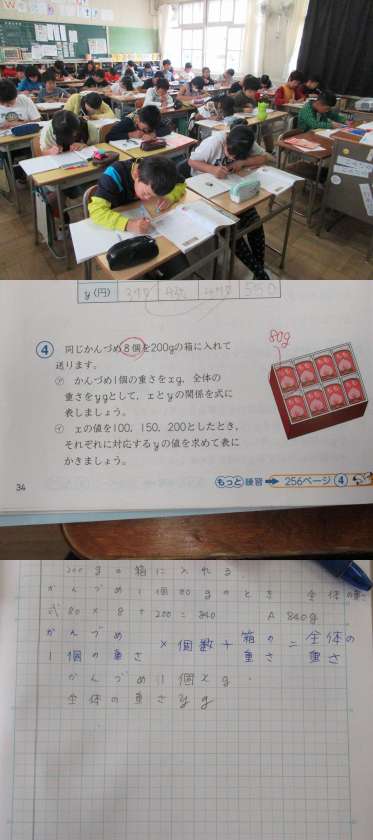 y(円)
80g
4 同じかんづめ8個を200gの箱に入れて
送ります。
㋐ かんづめ1個の重さをxg、全体の
重さをygとして、xとyの関係を式に
表しましょう。
㋑ xの値を100、150、200としたとき、
それぞれに対応するyの値を求めて表に
かきましょう。
34
もっと練習 → 256ページ 4
200gの箱に入れる
かんづめ1個80gのとき 全体の重さ
式 80×8+200=840 A 840g
かんづめ
1個の重さ × 個数 + 箱の重さ = 全体の重さ
かんづめ1個xg
全体の重さyg